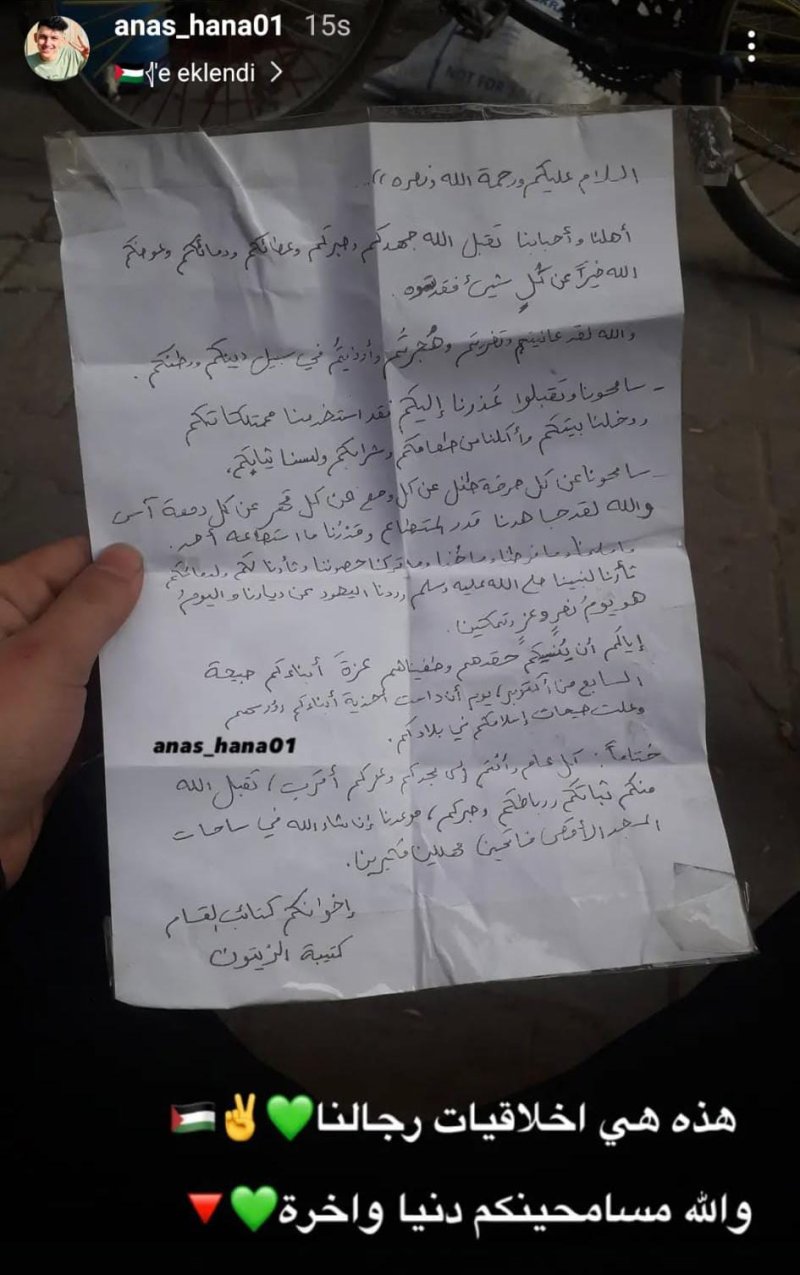 anas_hana01 15s
🇵🇸'e eklendi >
NOT FOR
السلام عليكم ورحمة الله ونصره ،،..
أهلنا وأحبابنا تقبل الله جهدكم وصبركم وعطائكم ودمائكم وعوضكم
الله خيراً عن كُلِ شيئ فقدتموه .
والله لقد عانيتم وتضررتم وهُجِّرتُم وأُوذيتُم في سبيل دينكم ووطنكم .
- سامحونا وتقبلوا عُذرنا إليكم فقد استخدمنا ممتلكاتكم
ودخلنا بيتكم وأكلنا من طعامكم وشرابكم ولبسنا ثيابكم.
- سامحونا عن كل صرخة طفل عن كل وجع عن كل قهر عن كل دمعة
والله لقد جاهدنا قدر المستطاع وقدّرنا ما استطاعه أحد.
وما فرطنا وما خُنّا وما تركنا حصوننا وثأرنا لكم ولدمائكم
ثأرنا لنبينا صلى الله عليه وسلم رددنا اليهود عن ديارنا واليومُ
هو يومُ نصرٍ وعزٍ وتمكين.
إياكم أن يُنسيكم حقدهم وطغيانهم عزةَ أبناءكم صبيحة
السابع من أكتوبر، يوم أن داست أحذية أبناءكم رؤوسهم
وعلت صيحات إسلامكم في بلادكم.
anas_hana01
ختاماً: كل عام وأنتم إلى مجدكم وعزكم أقرب، تقبل الله
منكم ثباتكم ورباطكم وصبركم، موعدنا إن شاء الله في ساحات
المسجد الأقصى فاتحين مهللين مكبرين.
إخوانكم كتائب القسام
كتيبة الزيتون
هذه هي اخلاقيات رجالنا💚✌️🇵🇸
والله مسامحينكم دنيا واخرة💚🔻